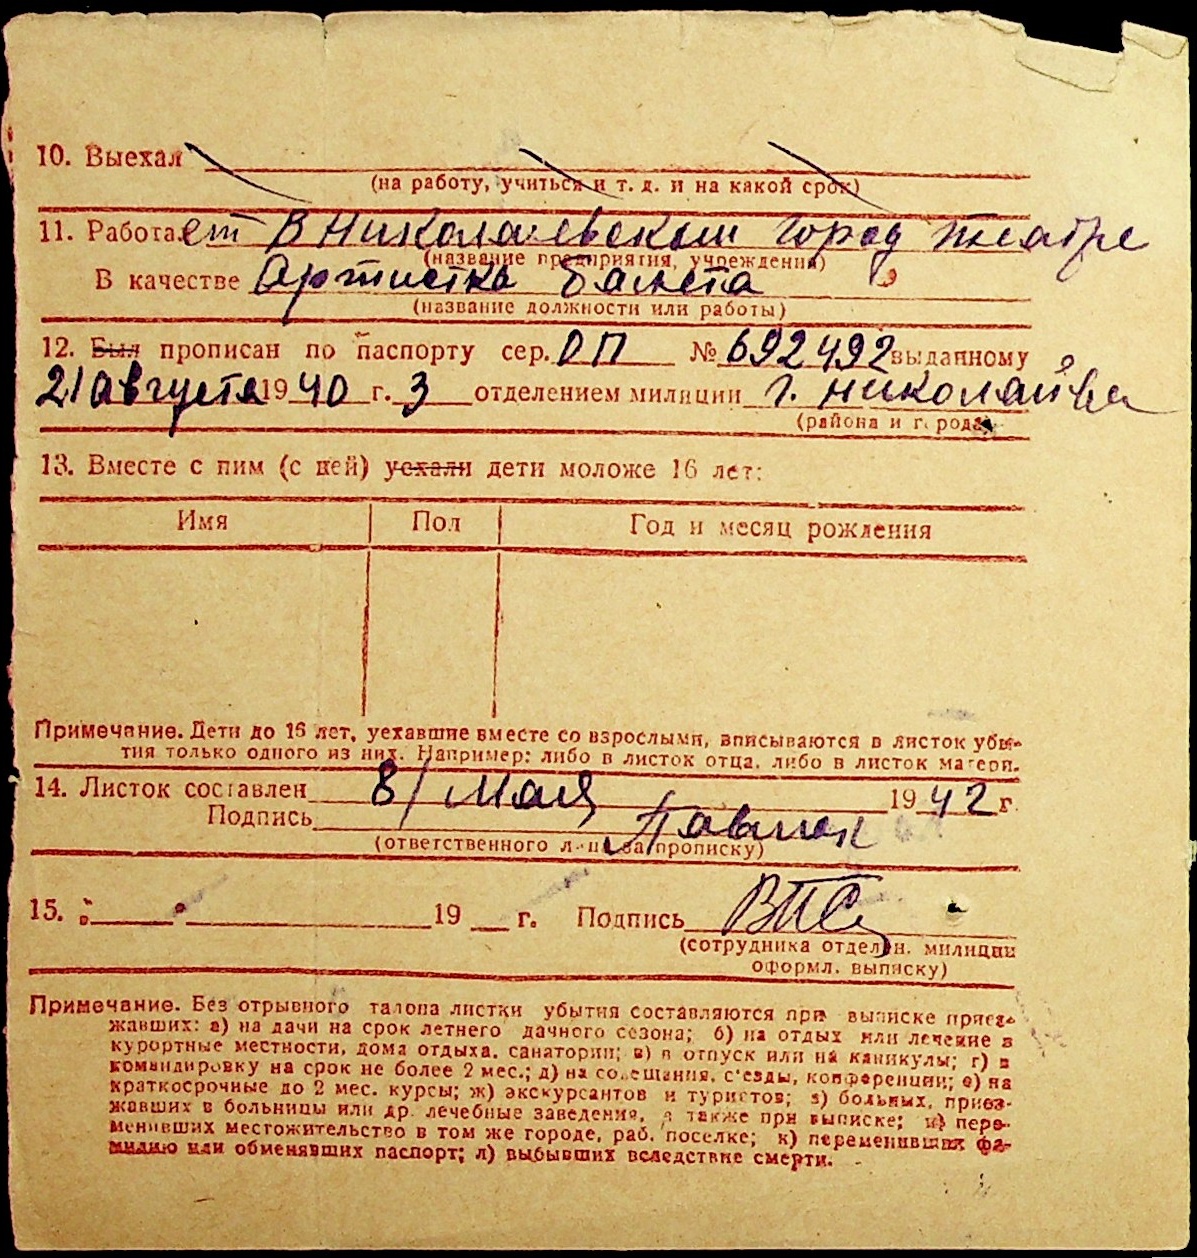 10. Выехал
(на работу, учиться и т. д. и на какой срок)
11. Работает в Николаевском город театре
(название предприятия, учреждения)
В качестве Артистка балета
(название должности или работы)
12. Был прописан по паспорту сер. ОП № 692492 выданному
21 августа 1940 г. 3 отделением милиции г. Николайва
(района и города)
13. Вместе с ним (с ней) уехали дети моложе 16 лет:
Имя Пол Год и месяц рождения
Примечание. Дети до 16 лет, уехавшие вместе со взрослыми, вписываются в листок убы-
тия только одного из них. Например: либо в листок отца, либо в листок матери.
14. Листок составлен 8/ мая 1942 г.
Подпись
(ответственного лица за прописку)
15. 19 г. Подпись
(сотрудника отделен. милиции
оформл. выписку)
Примечание. Без отрывного талона листки убытия составляются при выписке приез-
жавших: а) на дачи на срок летнего дачного сезона; б) на отдых или лечение в
курортные местности, дома отдыха, санатории; в) в отпуск или на каникулы; г) в
командировку на срок не более 2 мес.; д) на совещания, с'езды, конференции; е) на
краткосрочные до 2 мес. курсы; ж) экскурсантов и туристов; з) больных, приез-
жавших в больницы или др. лечебные заведения, а также при выписке; и) пере-
менивших местожительство в том же городе, раб. поселке; к) переменивших фа-
милию или обменявших паспорт; л) выбывших вследствие смерти.